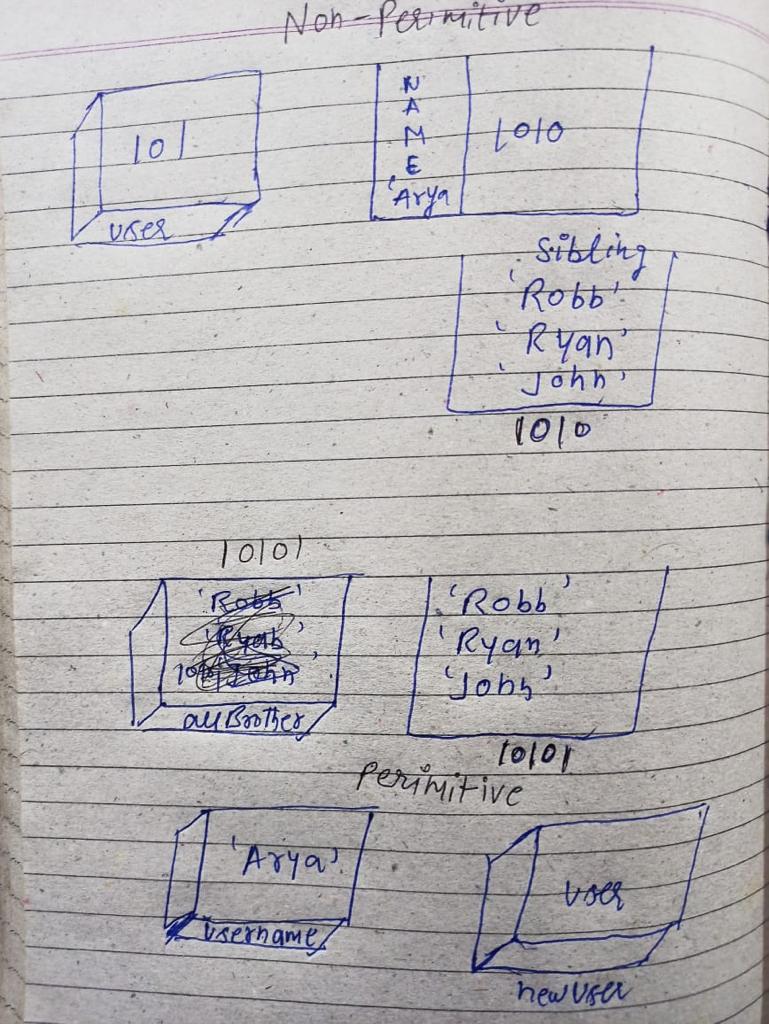 Non-Perimitive
101
user
N
A
M
E
'Arya
1010
Sibling
'Robb'
'Ryan'
'John'
1010
10101
'Robb'
'John'
allBrother
'Robb'
'Ryan'
'John'
10101
Perimitive
'Arya'
username
user
newUser